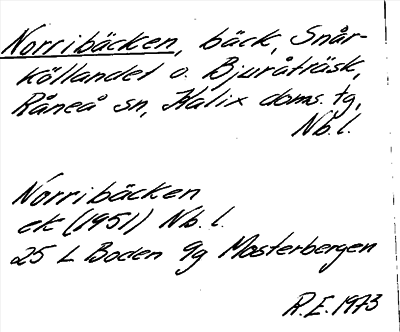 Norribäcken, bäck, Snår-
kölandet o. Bjuråträsk,
Råneå sn, Kalix doms. tg,
Nb. l.
Norribäcken
ek (1951) Nb. l.
25 L Boden 9g Mosterbergen
R.E. 1973